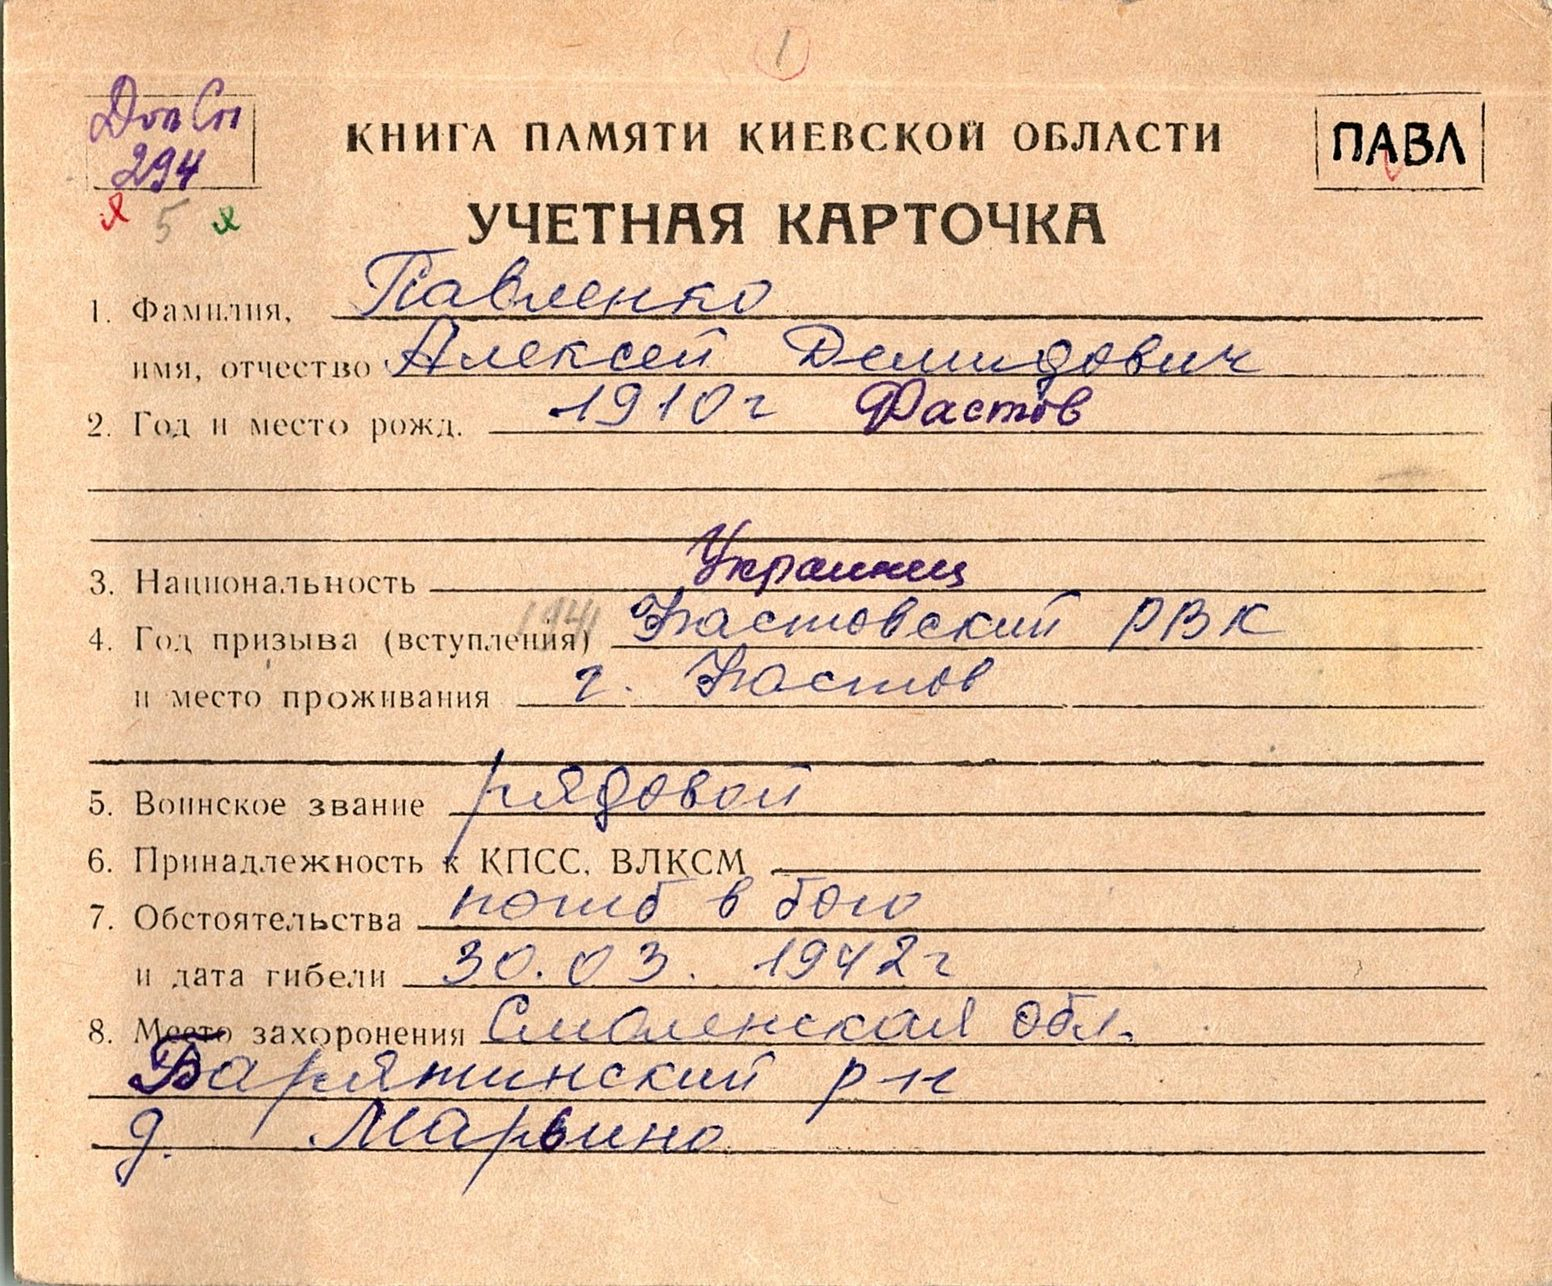 1
Доп Сп
294
5
КНИГА ПАМЯТИ КИЕВСКОЙ ОБЛАСТИ
ПАВЛ
УЧЕТНАЯ КАРТОЧКА
1. Фамилия, Павленко
имя, отчество Алексей Демидович
2. Год и место рожд. 1910 г Фастов
3. Национальность Украинец
1941
4. Год призыва (вступления) Фастовский РВК
и место проживания г. Фастов
5. Воинское звание рядовой
6. Принадлежность к КПСС, ВЛКСМ
7. Обстоятельства погиб в бою
и дата гибели 30.03.1942 г
8. Место захоронения Смоленская обл.
Барятинский р-н
д. Марьино